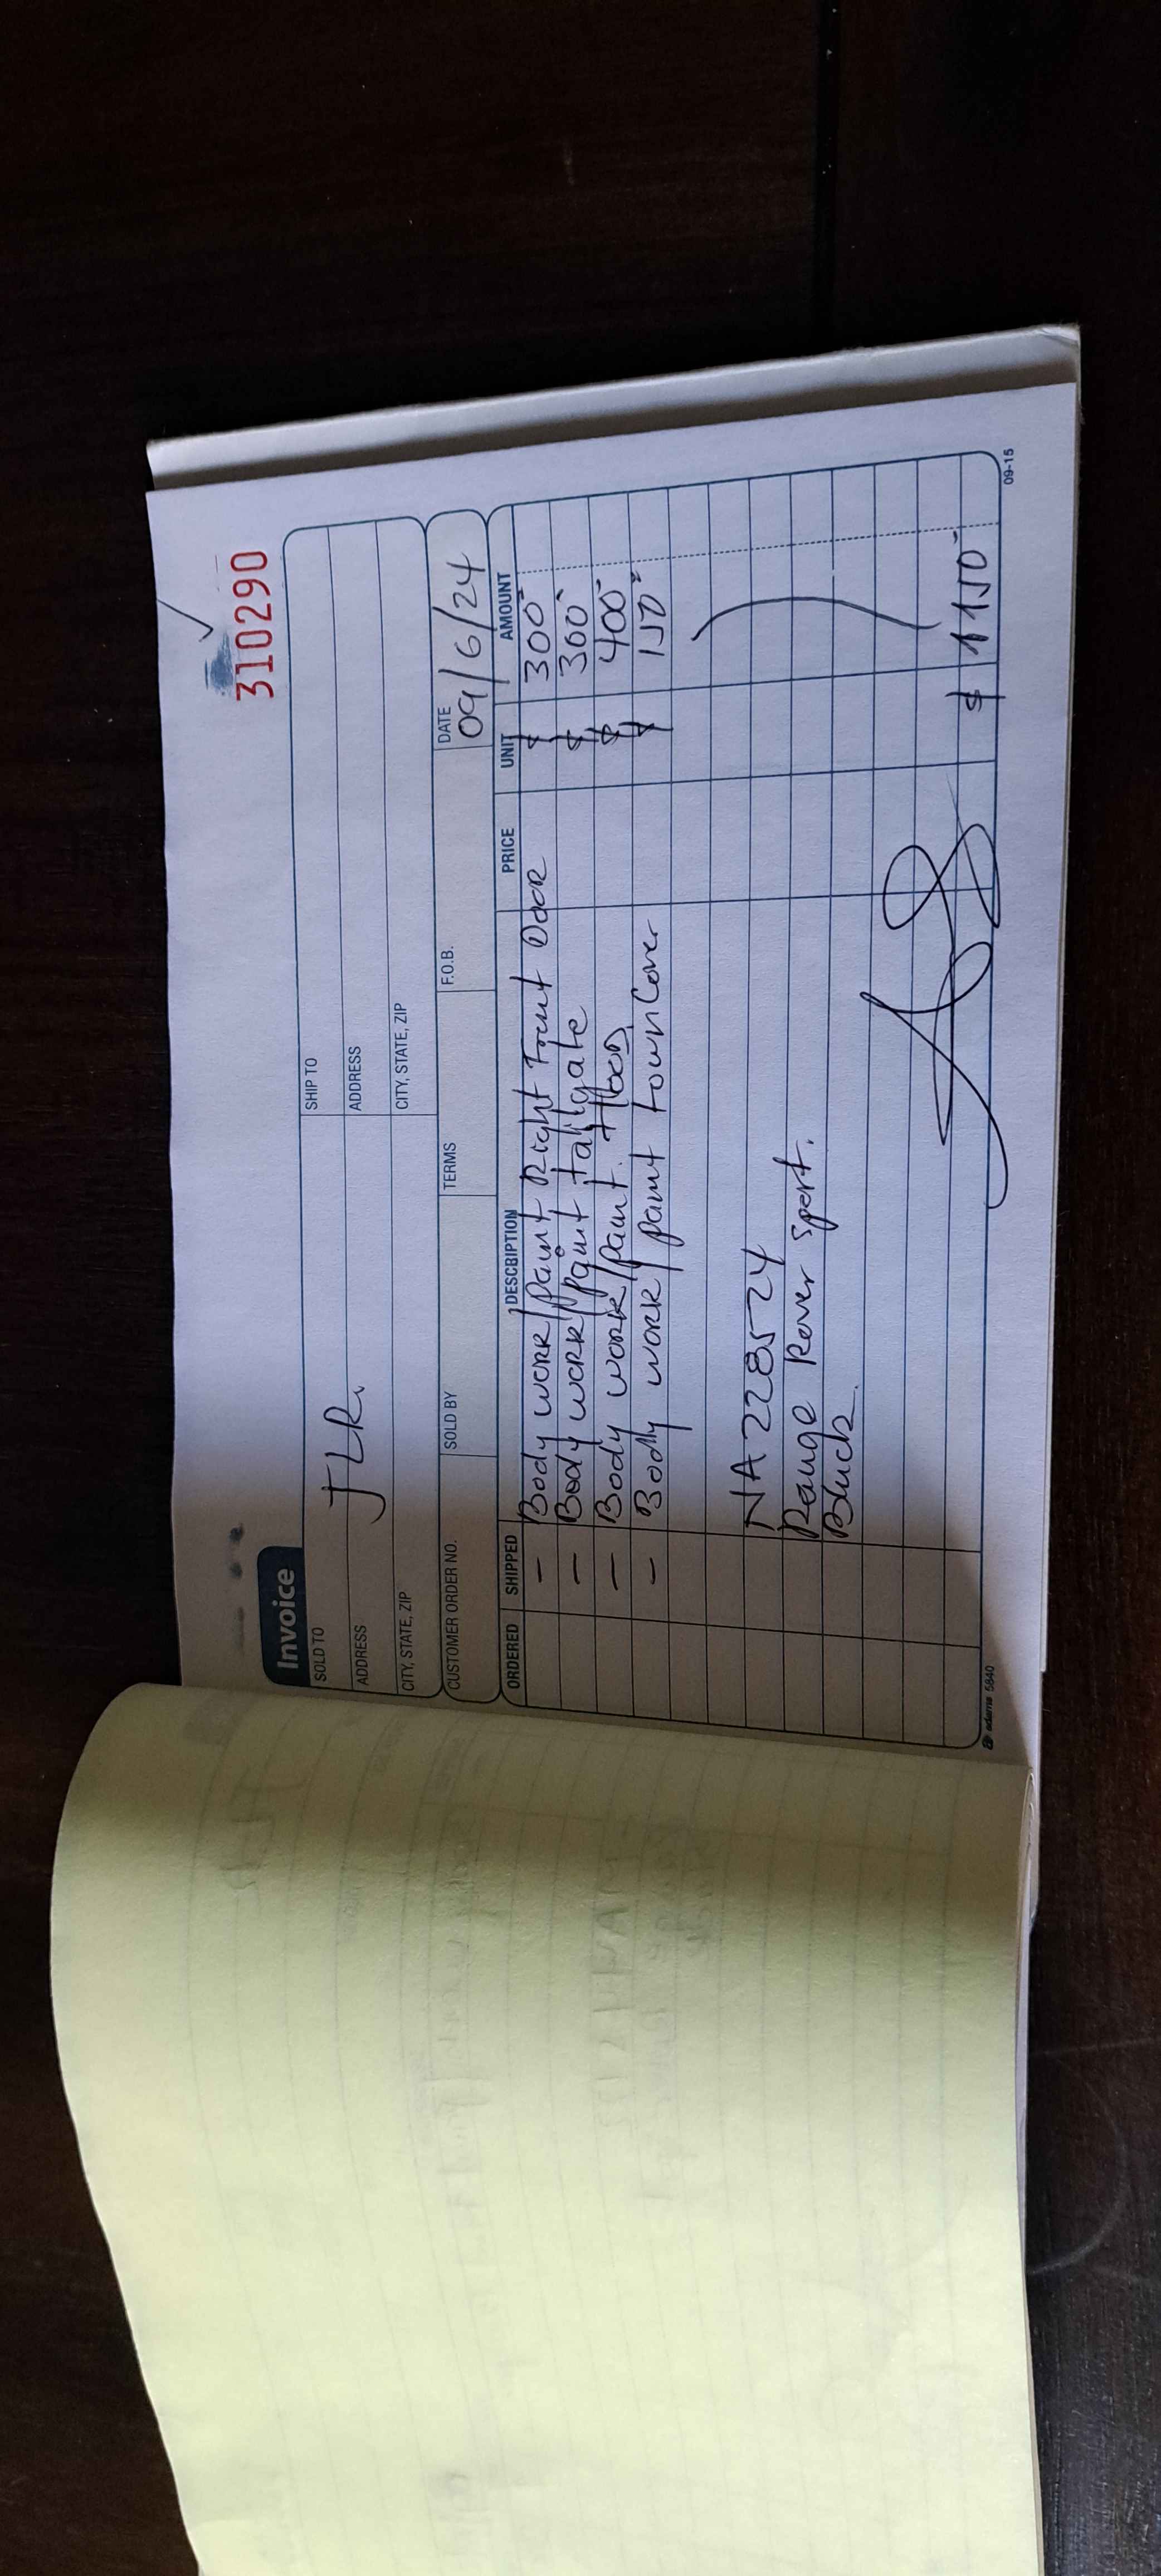 310290
Invoice
SOLD TO JLR. SHIP TO
ADDRESS ADDRESS
CITY, STATE, ZIP CITY, STATE, ZIP
CUSTOMER ORDER NO. SOLD BY TERMS F.O.B. DATE 09/6/24
ORDERED SHIPPED DESCRIPTION PRICE UNIT AMOUNT
- Body work/paint Right Front Door $ 300
- Body work/paint tailgate $ 300
- Body work/paint Hood $ 400
- Body work/paint town Cover $ 150
NA 228524
Range Rover Sport.
Black.
$ 1150
adams 5840 09-15